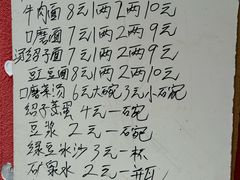 牛肉面8元1两2两10元
口磨面7元1两2两9元
河绍子面7元1两2两9元
豇豆面8元1两2两10元
口磨菜汤6元大碗3元小石碗
绍子蒸蛋4元一碗
豆浆2元一碗
绿豆水沙3元一杯
矿泉水2元一瓶